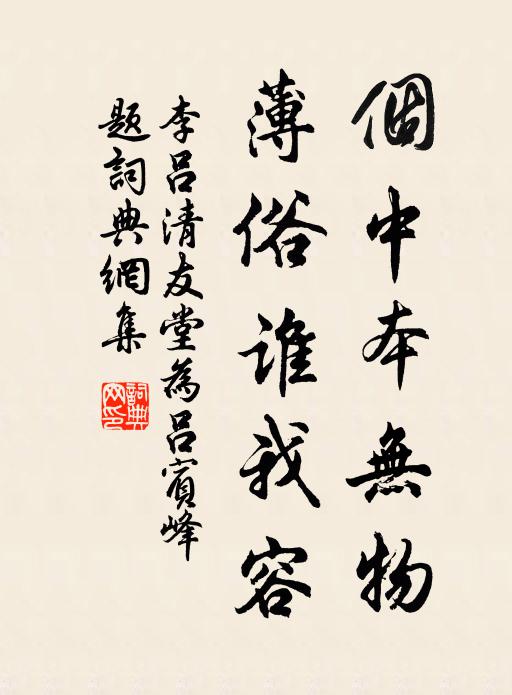 個中本無物
薄俗誰我容
李呂清友堂為呂賓峰
題詞典網集
詞典網印